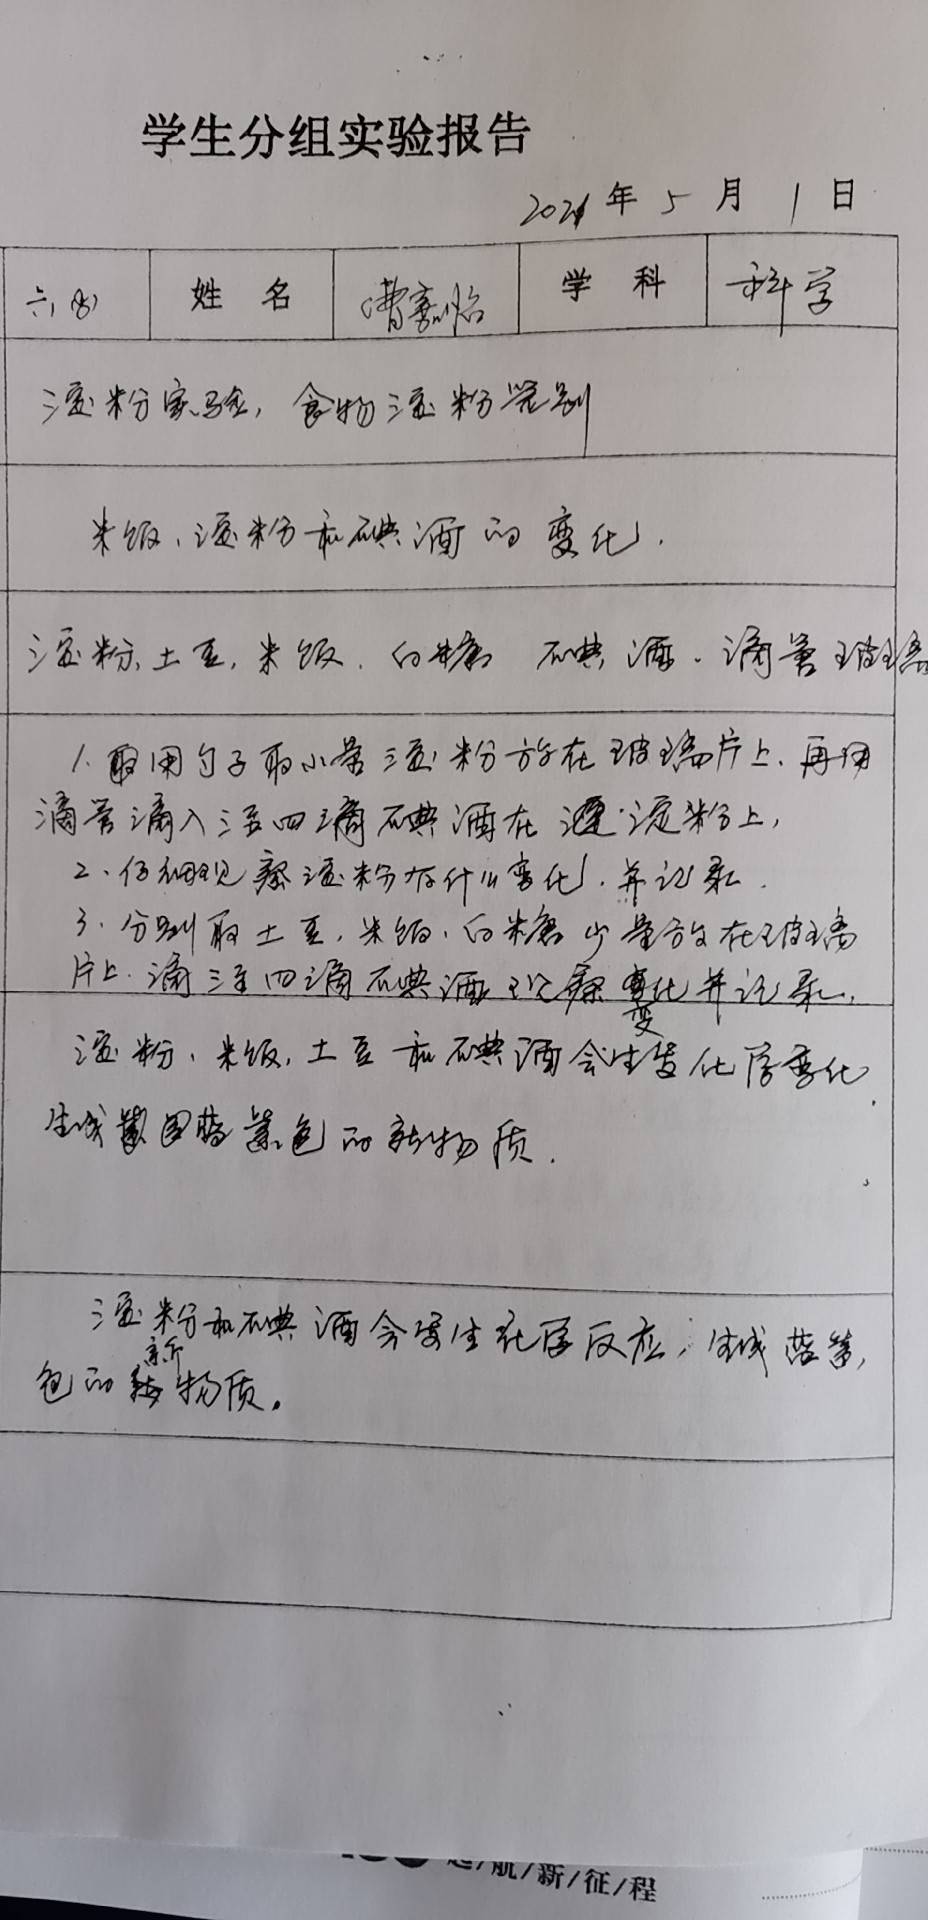 学生分组实验报告
2021年5月1日
六(8) 姓名 曹嘉怡 学科 科学
淀粉实验,食物淀粉鉴别
米饭、淀粉和碘酒的变化.
淀粉,土豆,米饭.白糖 碘酒.滴管玻璃
1.取用勺子取小量淀粉放在玻璃片上.再用
滴管滴入三至四滴碘酒在淀粉上,
2、仔细观察淀粉有什么变化.并记录.
3.分别取土豆.米饭.白糖少量放在玻璃
片上.滴三至四滴碘酒观察变化并记录.
变
淀粉、米饭,土豆和碘酒会生发化学变化
生成蓝紫色的新物质.
淀粉和碘酒会发生化学反应,生成蓝紫,
新
色的物质。
起/航/新/征/程